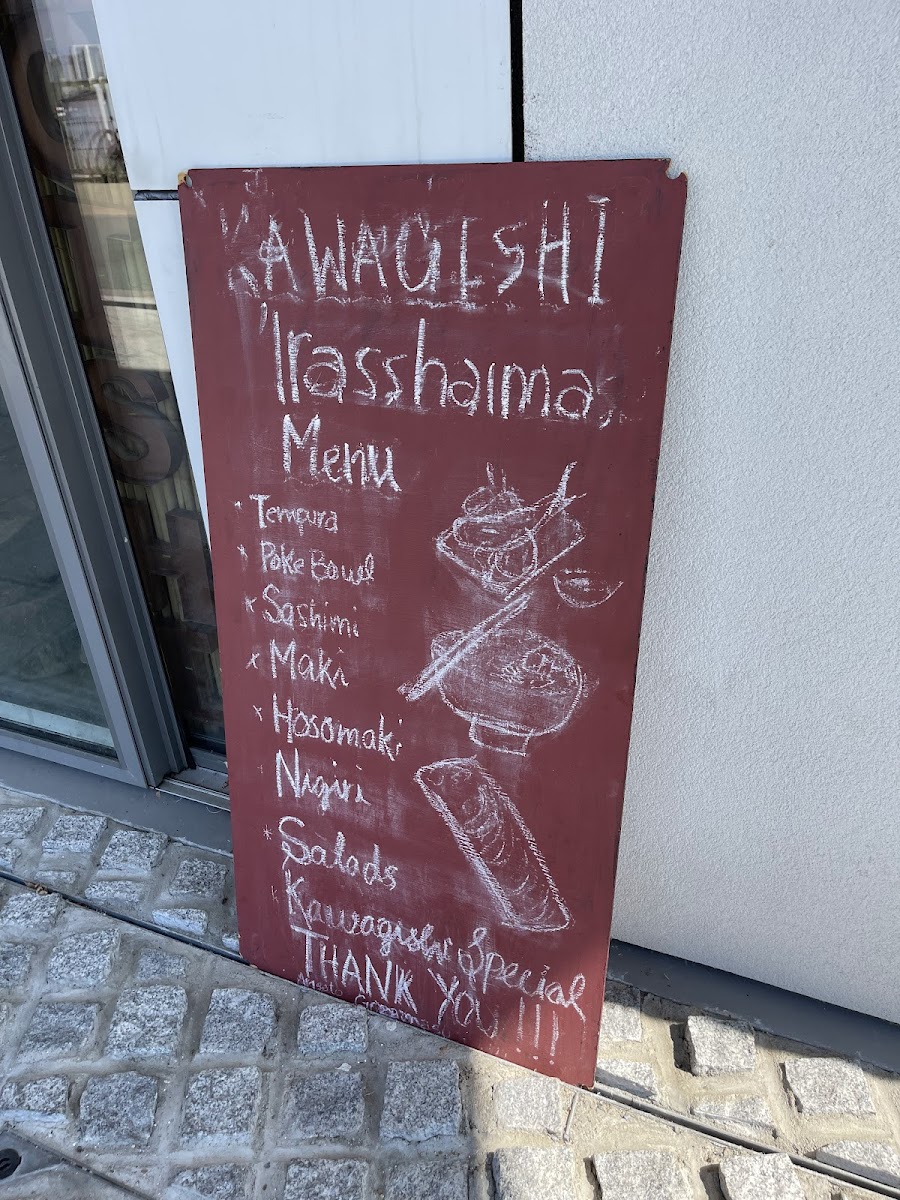 KAWAGISHI
Irasshaima
Menu
* Tempura
* Poke Bowl
* Sashimi
* Maki
* Hosomaki
Nigiri
* Salads
Kawagishi Special
THANK YOU !!!